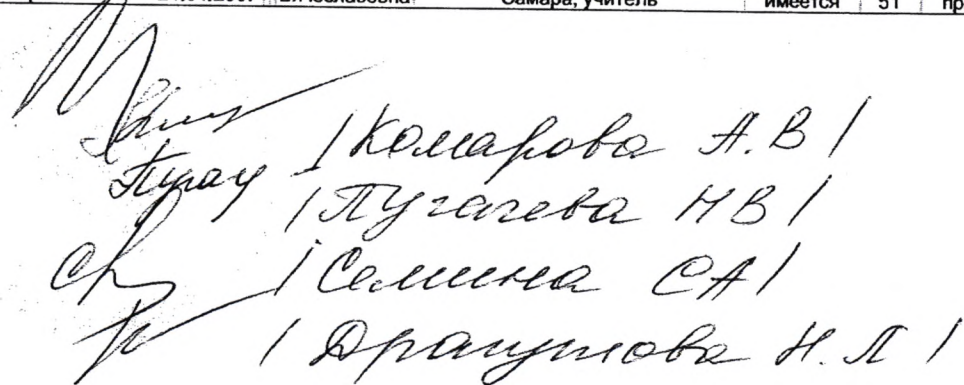 Самара, учитель имеется 51
/ Комарова А.В /
/ Пугачева НВ /
/ Семина СА /
/ Драгунова Н.Л /